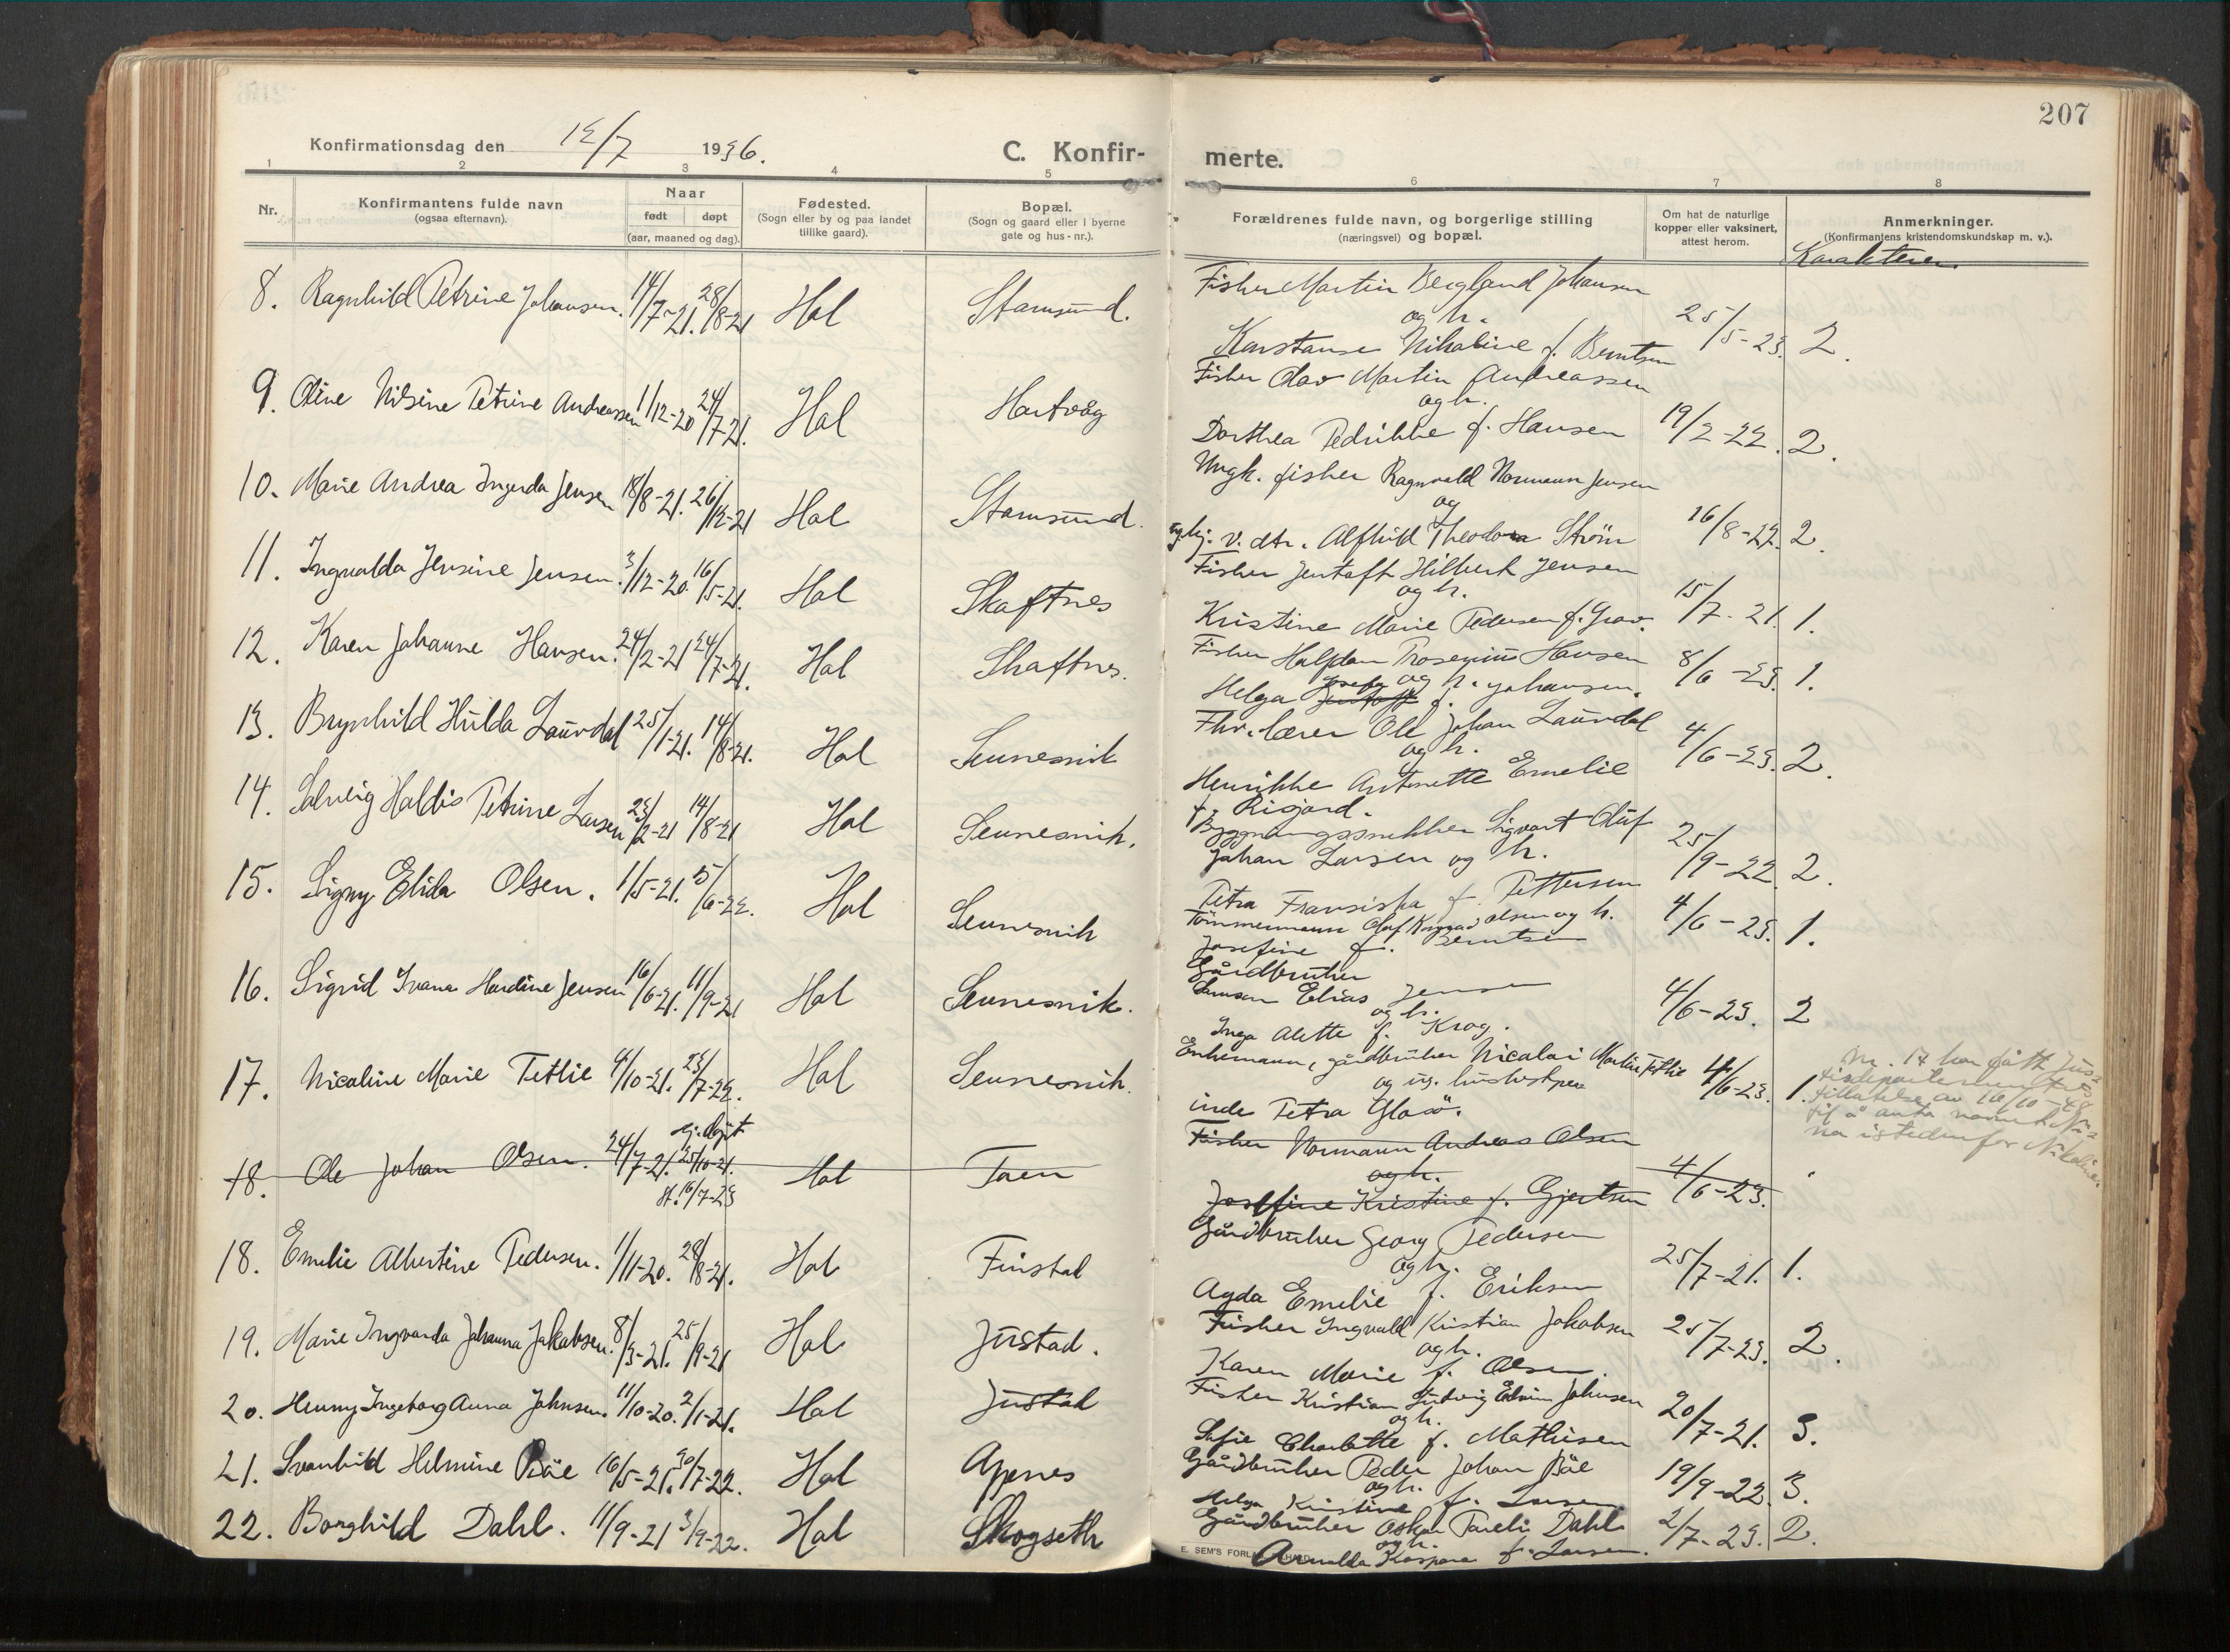 207
Konfirmationsdag den 12/7 1936.
C. Konfir-
merte.
1 2 3 4 5 6 7 8
Nr.
Konfirmantens fulde navn
(ogsaa efternavn).
Naar
født døpt
(aar, maaned og dag).
Fødested.
(Sogn eller by og paa landet
tillike gaard).
Bopæl.
(Sogn og gaard eller i byerne
gate og hus-nr.).
Forældrenes fulde navn, og borgerlige stilling
(næringsvei) og bopæl.
Om hat de naturlige
kopper eller vaksinert,
attest herom.
Anmerkninger.
(Konfirmantens kristendomskundskap m. v.).
Karakterer.
8. Ragnhild Petrine Johansen. 14/7-21. 28/8-21 Hol Stamsund.
Fisker Martin Bergland Johansen
og h.
Konstanse Nikoline f. Berntsen 25/5-23. 2.
9. Oline Nilsine Petrine Andreassen 1/12-20 24/7-21. Hol Hartvåg
Fisker Olav Martin Andreassen
og h.
Dorthea Pedrikke f. Hansen 19/2-22. 2.
10. Marie Andrea Ingerda Jensen 18/8-21. 26/12-21 Hol Stamsund.
Ungk. fisker Ragnvald Normann Jensen
og
v. dtr. Alfhild Theodora Strøm 16/8-22. 2.
11. Ingvalda Jensine Jensen. 3/12-20. 16/5-21. Hol Skaftnes
Fisker Jentoft Hilbert Jensen
og h.
Kristine Marie Pedersen f. Grav. 15/7-21. 1.
12. Karen Johanne Hansen. 24/2-21 24/7-21. Hol Skaftnes.
Fisker Halfdan Prosenius Hansen
og h.
Helga Josefa f. Johansen. 8/6-23. 1.
13. Brynhild Hulda Laurdal 25/1-21. 14/8-21. Hol Sennesvik
Fhv. lærer Ole Johan Laurdal
og h.
Henrikke Antonette Emelie
f. Risjord. 4/6-23. 2.
14. Solveig Haldis Petrine Larsen 23/2-21 14/8-21 Hol Sennesvik.
Bygningssnekker Sigvart Oluf
Johan Larsen og h.
Petra Fransiska f. Pettersen 25/9-22. 2.
15. Signy Elida Olsen. 1/5-21. 5/6-22. Hol Sennesvik
Tømmermann Olaf Konrad Olsen og h.
Josefine f. Berntsen 4/6-23. 1.
16. Sigrid Ivana Hardine Jensen 16/6-21. 11/9-21 Hol Sennesvik.
Gårdbruker
Samson Elias Jensen
og h.
Inga Alette f. Krog. 4/6-23. 2
17. Nicoline Marie Tetlie 4/10-21. 23/7-22. Hol Sennesvik.
Enkemann, gårdbruker Nicolai Martin Tetlie
og ug. husbestyrer
inde Petra Glasø. 4/6-23. 1.
Nr. 17 har fått Jus-
tisdepartementets
tillatelse av 16/10-48
til å anta navnet Ni-
na istedenfor Nikoline.
18. Ole Johan Olsen. 24/7-21. hj. døpt 25/10-21. st. 16/7-23 Hol Toen
Fisker Normann Andreas Olsen
og h.
Josefine Kristine f. Gjertsen 4/6-23.
18. Emelie Albertine Pedersen. 1/11-20. 28/8-21. Hol Finstad
Gårdbruker Georg Pedersen
og h.
Agda Emelie f. Eriksen 25/7-21. 1.
19. Marie Ingvarda Johanna Jakobsen. 8/3-21. 25/9-21 Hol Justad.
Fisker Ingvald Kristian Jakobsen
og h.
Karen Marie f. Olsen. 25/7-23. 2.
20. Henny Ingeborg Anna Johnsen. 11/10-20. 2/1-21. Hol Justad
Fisker Kristian Ludvig Edvin Johnsen
og h.
Sofie Charlotte f. Mathisen 20/7-21. 3.
21. Svanhild Helmine Bøe 16/5-21. 30/7-22. Hol Apnes
Gårdbruker Peder Johan Bøe
og h.
Helga Kristine f. Larsen 19/9-22. 3.
22. Borghild Dahl. 11/9-21 3/9-22. Hol Skogseth
Gårdbruker Oskar Pareli Dahl
og h.
Arnolda Kaspara f. Larsen. 2/7-23. 2.
E. SEM'S FORLAG